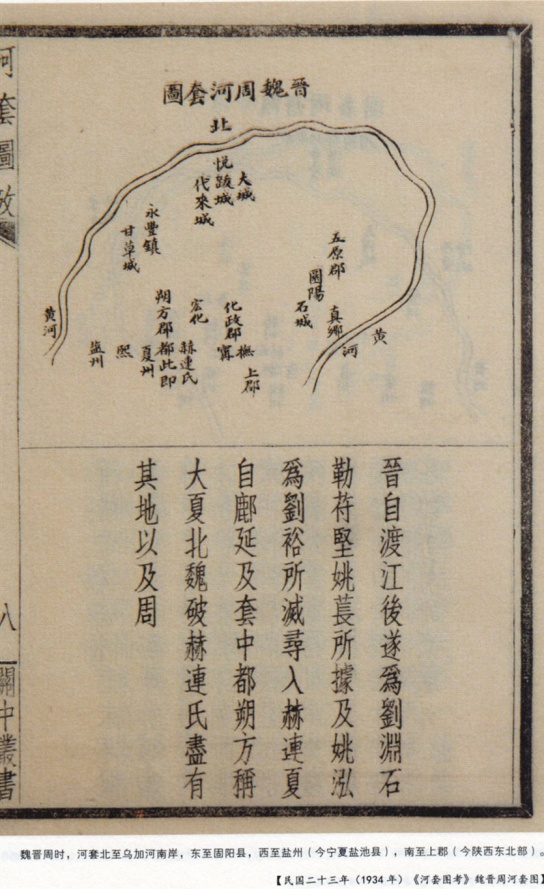 晉魏周河套圖
北
大城
悦跋城
代來城
永豐鎮
甘草城
五原郡
圁陽
石城
真鄉
黄河
化政郡
宏化
朔方郡
撫
寧
上郡
赫連氏
都此即
夏州
熙
鹽州
黄河
晉自渡江後遂爲劉淵石
勒苻堅姚萇所據及姚泓
爲劉裕所滅尋入赫連夏
自鄜延及套中都朔方稱
大夏北魏破赫連氏盡有
其地以及周
河套圖攷
八
關中叢書
魏晋周时，河套北至乌加河南岸，东至固阳县，西至盐州（今宁夏盐池县），南至上郡（今陕西东北部）。
【民国二十三年（1934年）《河套图考》魏晋周河套图】